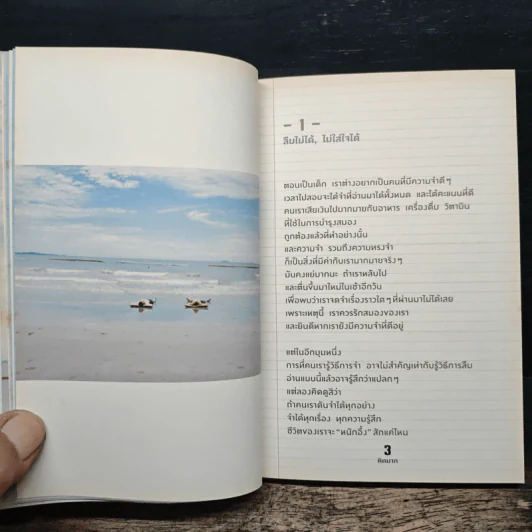 - 1 -
ลืมไม่ได้, ไม่ใส่ใจได้
ตอนเป็นเด็ก เราต่างอยากเป็นคนที่มีความจำดีๆ
เวลาไปสอบจะได้จำที่อ่านมาได้ทั้งหมด และได้คะแนนที่ดี
คนเราเสียเงินไปมากมายกับอาหาร เครื่องดื่ม วิตามิน
ที่ใช้ในการบำรุงสมอง
ถูกต้องแล้วที่ทำอย่างนั้น
และความจำ รวมถึงความทรงจำ
ก็เป็นสิ่งที่มีค่ากับเรามากมายจริงๆ
มันคงแย่มากนะ ถ้าเราหลับไป
และตื่นขึ้นมาใหม่ในเช้าอีกวัน
เพื่อพบว่าเราจดจำเรื่องราวใดๆ ที่ผ่านมาไม่ได้เลย
เพราะเหตุนี้ เราควรรักสมองของเรา
และยินดีหากเรายังมีความจำที่ดีอยู่
แต่ในอีกมุมหนึ่ง
การที่คนเรารู้วิธีการจำ อาจไม่สำคัญเท่ากับรู้วิธีการลืม
อ่านแบบนี้แล้วอาจรู้สึกว่าแปลกๆ
แต่ลองคิดดูสิว่า
ถ้าคนเราดันจำได้ทุกอย่าง
จำได้ทุกเรื่อง ทุกความรู้สึก
ชีวิตของเราจะ “หนักอึ้ง” สักแค่ไหน
3
คิดมาก